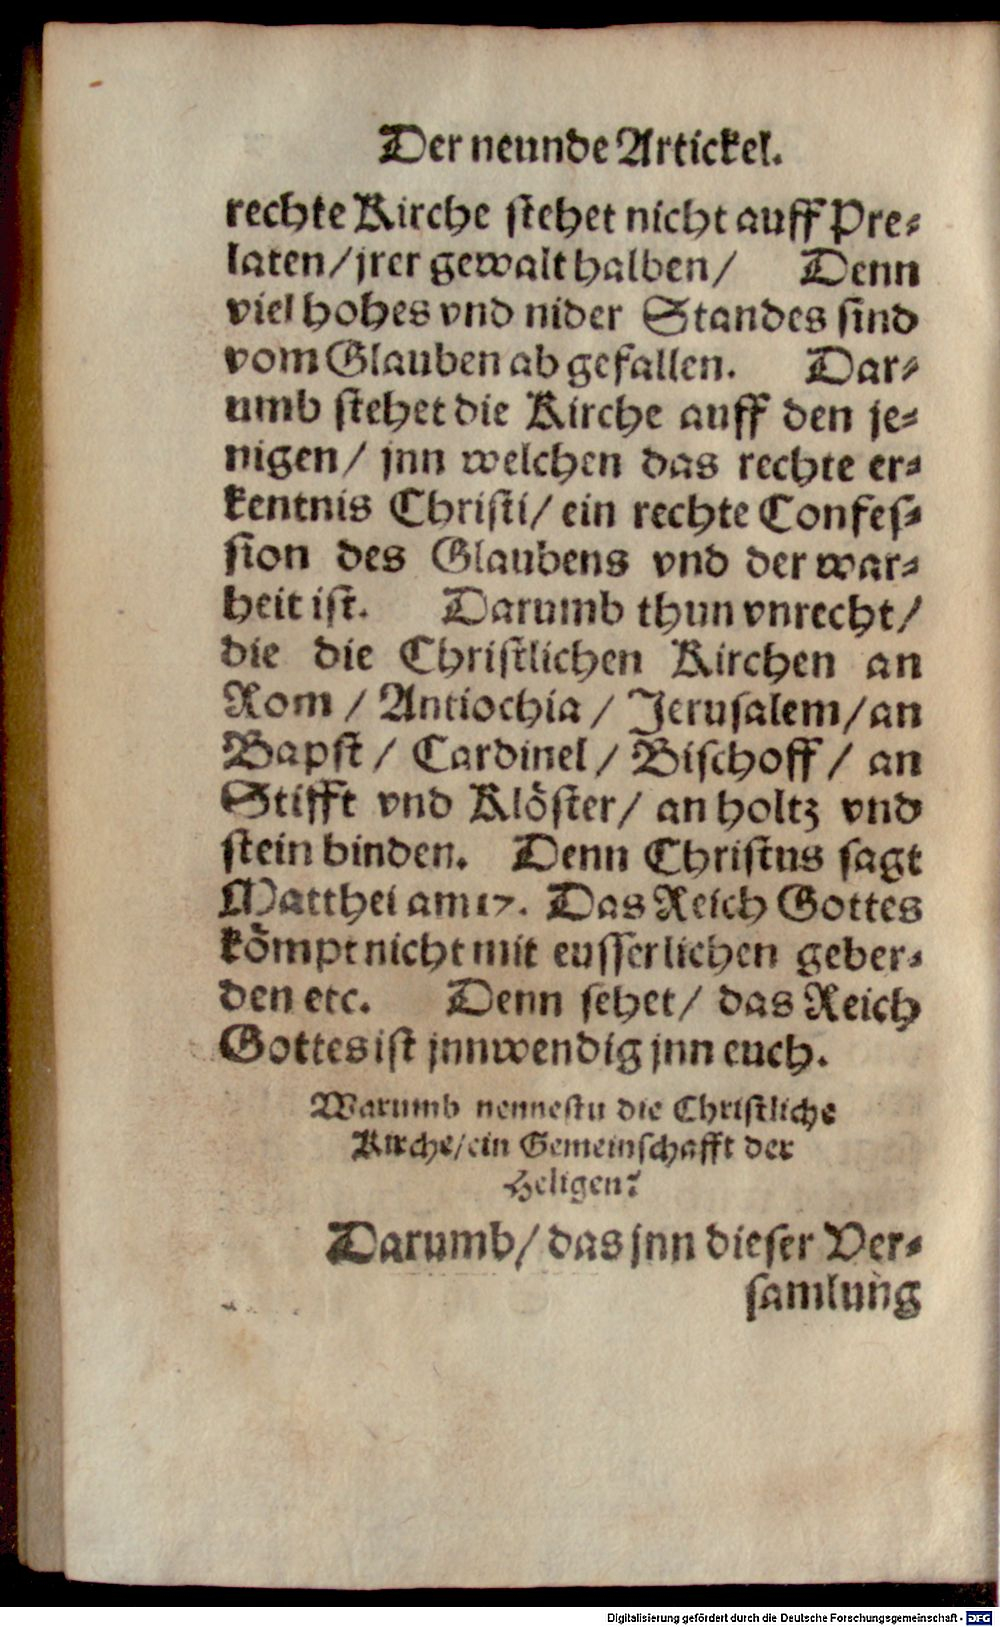 Der neunde Artickel.
rechte Kirche stehet nicht auff Pre-
laten/ jrer gewalt halben/ Denn
viel hohes vnd nider Standes sind
vom Glauben ab gefallen. Dar-
umb stehet die Kirche auff den je-
nigen/ jnn welchen das rechte er-
kentnis Christi/ ein rechte Confes-
sion des Glaubens vnd der war-
heit ist. Darumb thun vnrecht/
die die Christlichen Kirchen an
Rom / Antiochia / Jerusalem/ an
Bapst / Cardinel / Bischoff / an
Stifft vnd Klöster/ an holtz vnd
stein binden. Denn Christus sagt
Matthei am 17. Das Reich Gottes
kömpt nicht mit eusserlichen geber-
den etc. Denn sehet/ das Reich
Gottes ist jnnwendig jnn euch.
Warumb nennestu die Christliche
Kirche/ ein Gemeinschafft der
Heligen?
Darumb/ das jnn dieser Ver-
samlung
Digitalisierung gefördert durch die Deutsche Forschungsgemeinschaft - DFG